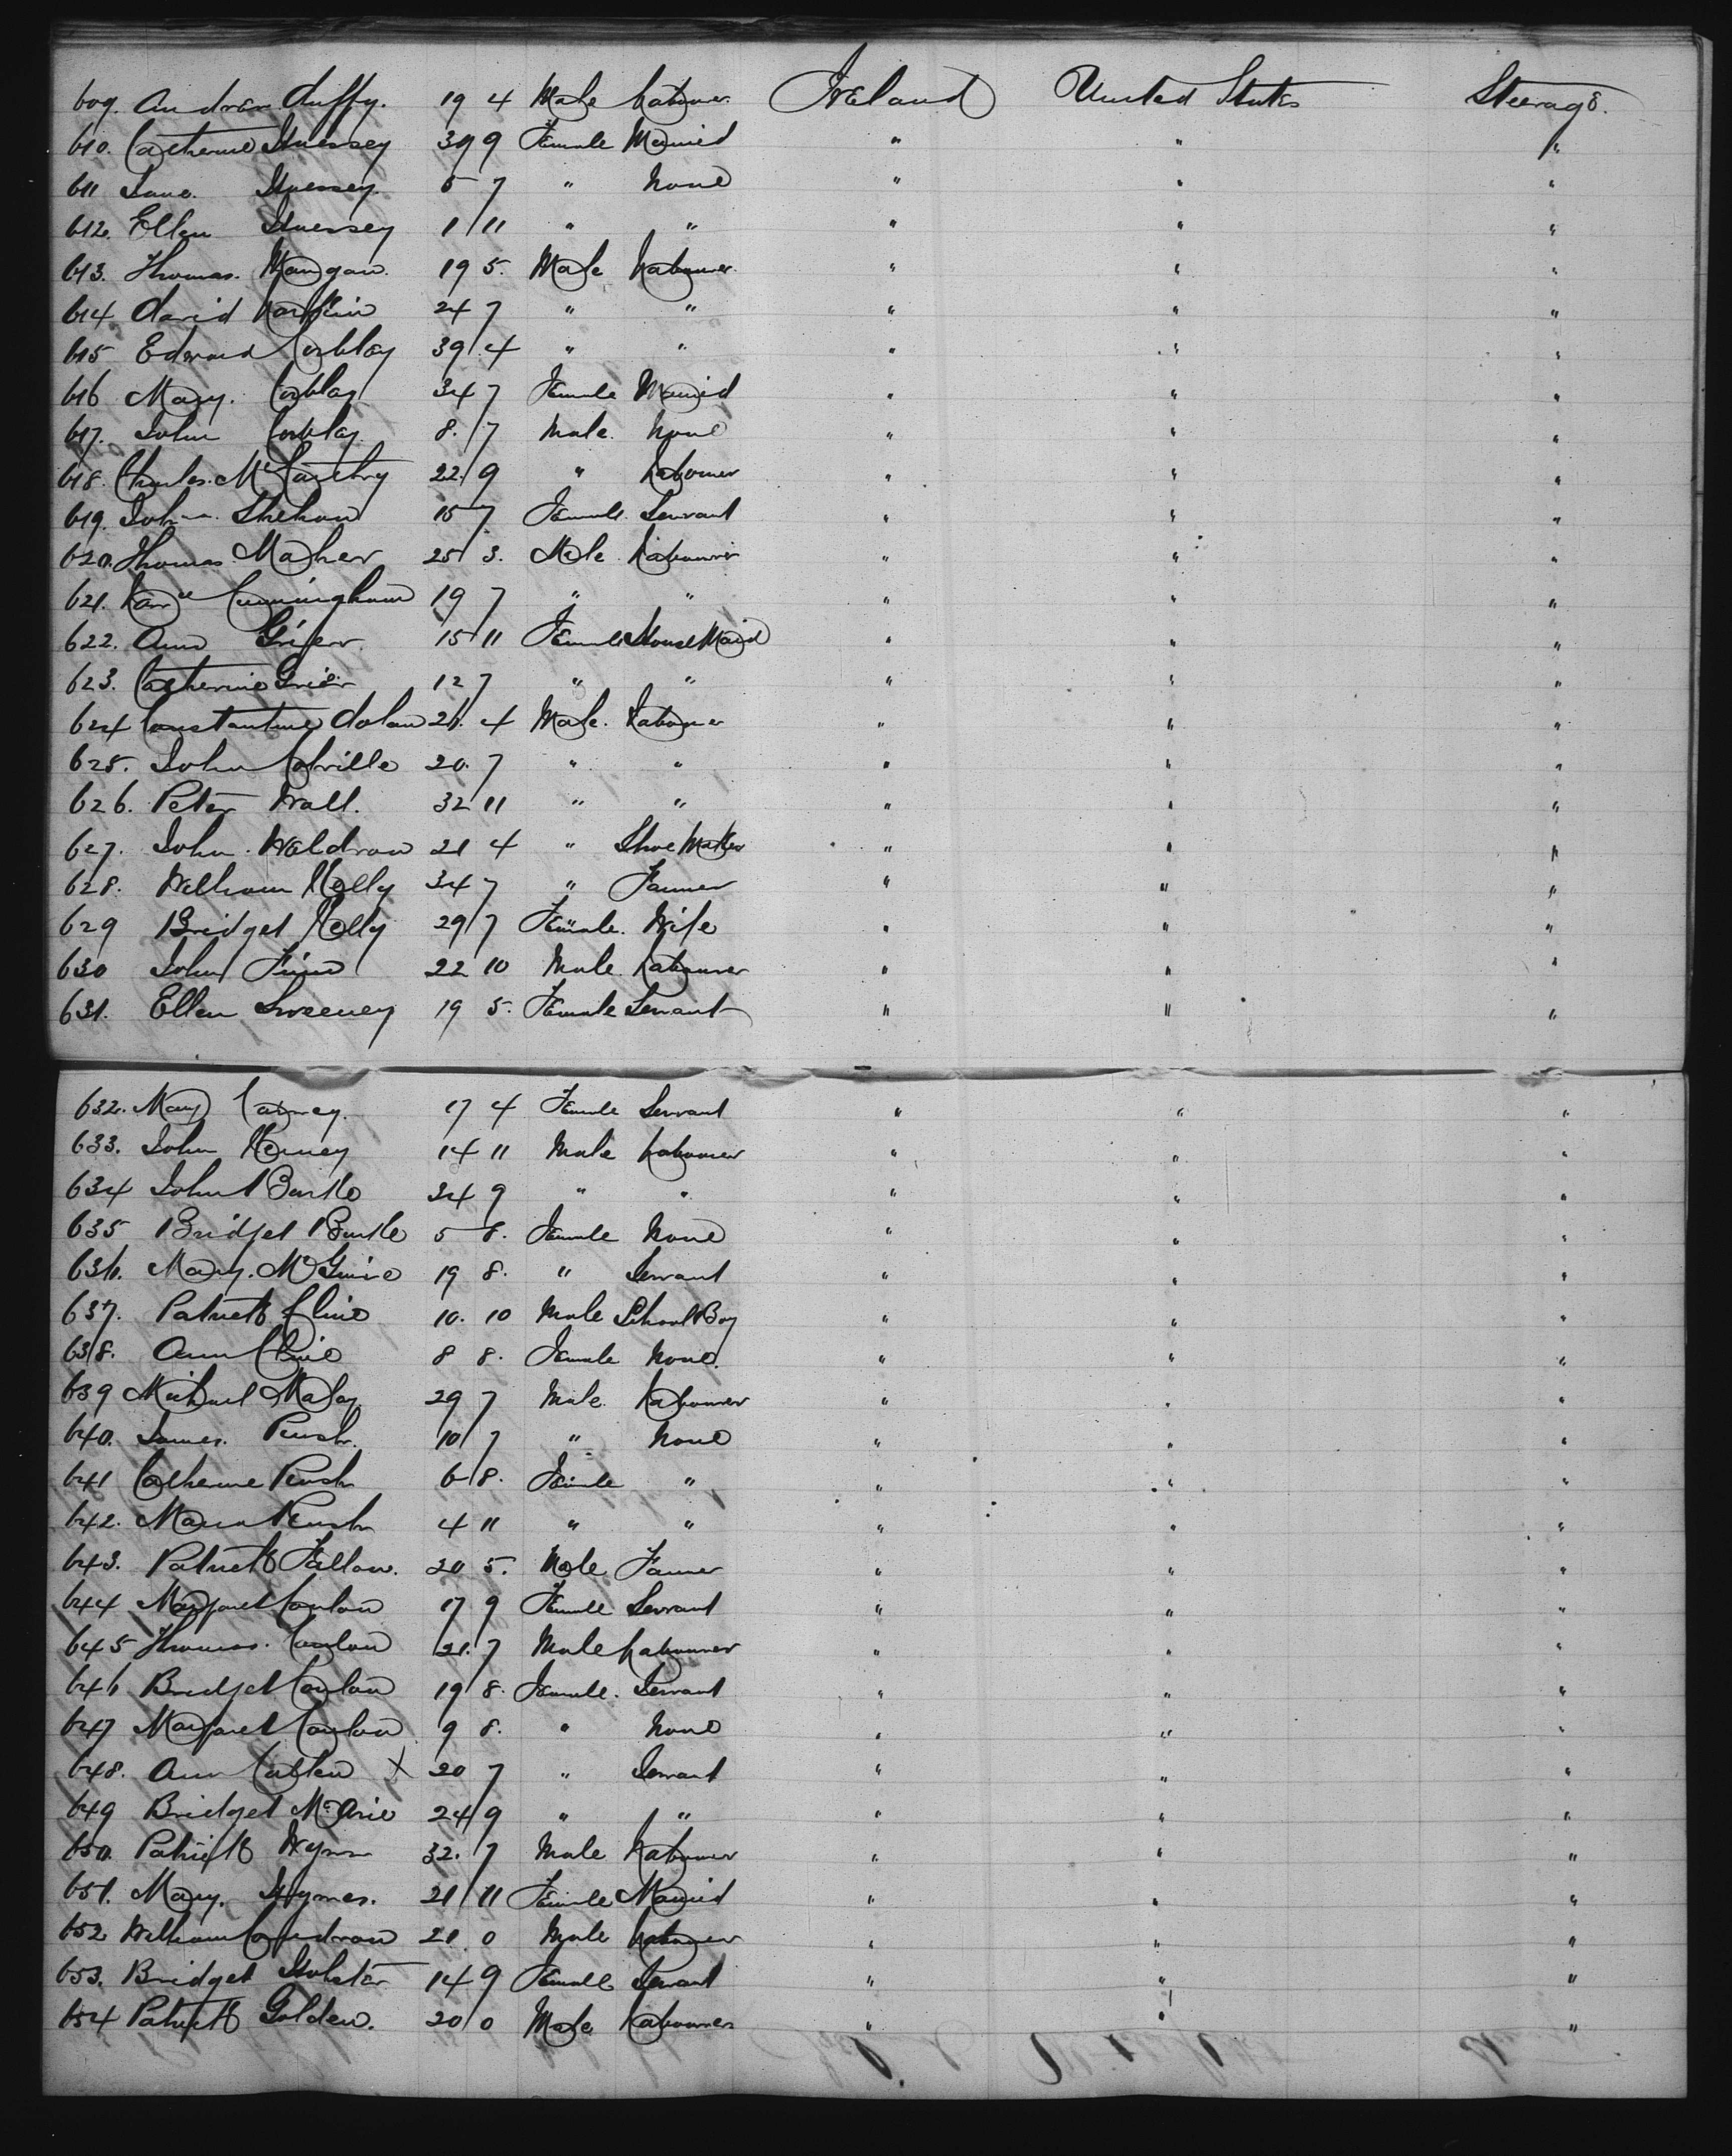 609. Andrew Duffy. 19 4 Male Labourer Ireland United States Steerage.
610. Catherine Hnessey 39 9 Female Married " " "
611 Jane. Hnessey. 5 7 " None " " "
612. Ellen Hnessey 1 11 " " " " "
613. Thomas. Mangan. 19 5. Male Labourer " " "
614 David 24 7 " " " " "
615 Edward Corblay 39 4 " " " " "
616 Mary. Corblay 34 7 Female Married " " "
617. John Corblay 8. 7 Male. None " " "
618. Charles. McCarthy 22. 9 " Labourer " " "
619. Shehan 15 7 Female. Servant " " "
620. Thomas Maher 25 3. Male Labourer " " "
621. Cunningham 19 7 " " " " "
622. Ann Grierr. 15 11 Female House Maid " " "
623. Catherine Grier 12 7 " " " " "
624 Constantine Dolan 21. 4 Male. Labourer " " "
625. John Colville 20. 7 " " " " "
626. Peter Wall. 32 11 " " " " "
627. John Waldron 21 4 " Shoe Maker " " "
628. William Kelly 34 7 " Farmer " " "
629 Bridget Kelly 29 7 Female. Wife " " "
630 John Finn 22 10 Male Labourer " " "
631. Ellen Sweeney 19 5. Female Servant " " "
632. Mary Carney. 17 4 Female Servant " " "
633. John Kerney 14 11 Male Labourer " " "
634 John Burke 34 9 " " " " "
635 Bridget Burke 5 8. Female None " " "
636. Mary. McGuire 19 8. " Servant " " "
637. Patrick Cline 10. 10 Male School Boy " " "
638. Ann Cline 8 8. Female None. " " "
639 Michael Maloy. 29 7 Male Labourer " " "
640. James. Rush. 10 7 " None " " "
641 Catherine Rush 6 8. Female " " " "
642. Maria Rush 4 11 " " " " "
643. Patrick Fallow. 20 5. Male Farmer " " "
644 Margaret Conlon 17 9 Female Servant " " "
645 Thomas. Conlon 21. 7 Male Labourer " " "
646 Bridget Conlon 19 8. Female. Servant " " "
647 Margaret Conlon 9 8. " None " " "
648. Ann X 20 7 " Servant " " "
649 Bridget 24 9 " " " " "
650. Patrick Wynn 32. 7 Male Labourer " " "
651. Mary. Hymes. 21 11 Female Married " " "
652 William 21. 0 Male Labourer " " "
653. Bridget 14 9 Female Servant " " "
654 Patrick Golden. 20 0 Male Labourer " " "